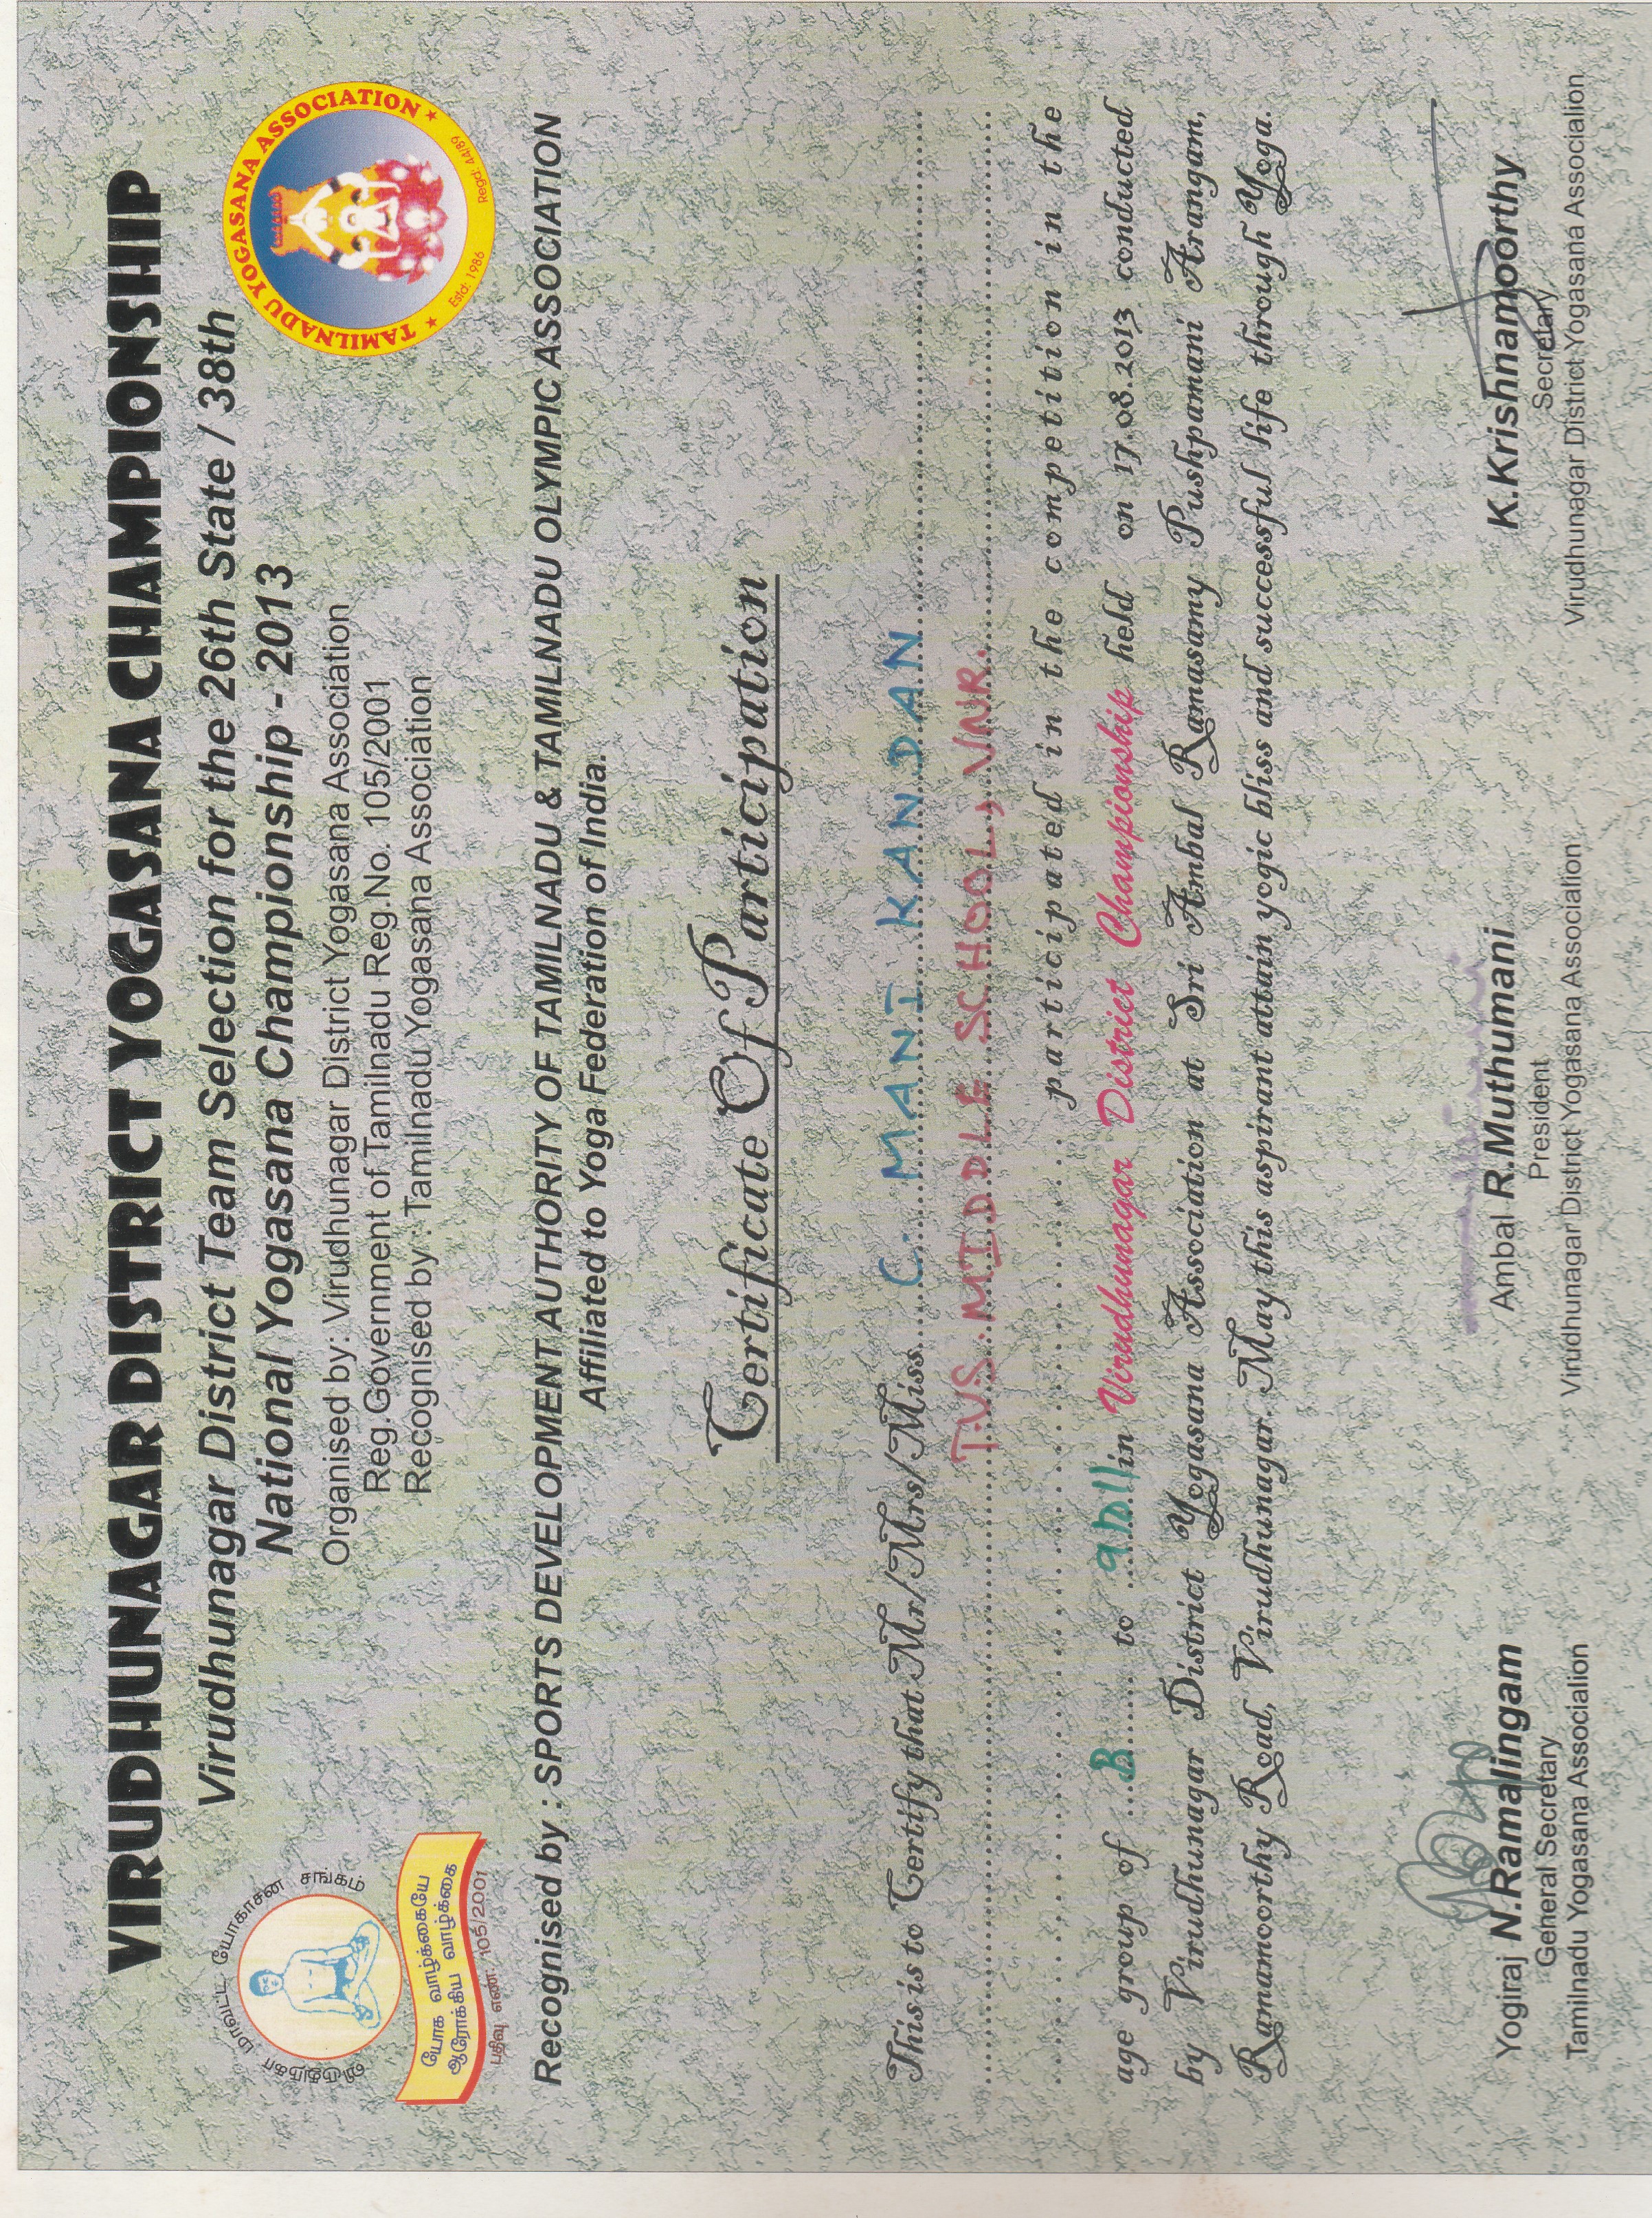 VIRUDHUNAGAR DISTRICT YOGASANA CHAMPIONSHIP
Virudhunagar District Team Selection for the 26th State / 38th
National Yogasana Championship - 2013
Organised by: Virudhunagar District Yogasana Association
Reg.Government of Tamilnadu Reg.No. 105/2001
Recognised by : Tamilnadu Yogasana Association
விருதுநகர் மாவட்ட யோகாசன சங்கம்
யோக வாழ்க்கையே
ஆரோக்கிய வாழ்க்கை
பதிவு எண்: 105/2001
★ TAMILNADU YOGASANA ASSOCIATION ★
Estd: 1986 Regd: 44/89
Recognised by : SPORTS DEVELOPMENT AUTHORITY OF TAMILNADU & TAMILNADU OLYMPIC ASSOCIATION
Affiliated to Yoga Federation of India.
Certificate Of Participation
This is to Certify that Mr/Mrs/Miss C. MANI KANDAN
T.V.S. MIDDLE SCHOOL, VNR.
participated in the competition in the
age group of B to in Virudhunagar District Championship held on 17.08.2013 conducted
by Virudhunagar District Yogasana Association at Sri Ambal Ramasamy Pushpamani Arangam,
Ramamoorthy Road, Virudhunagar. May this aspirant attain yogic bliss and successful life through Yoga.
Yogiraj N.Ramalingam
General Secretary
Tamilnadu Yogasana Association
Ambal R.Muthumani
President
Virudhunagar District Yogasana Association
K.Krishnamoorthy
Secretary
Virudhunagar District Yogasana Association